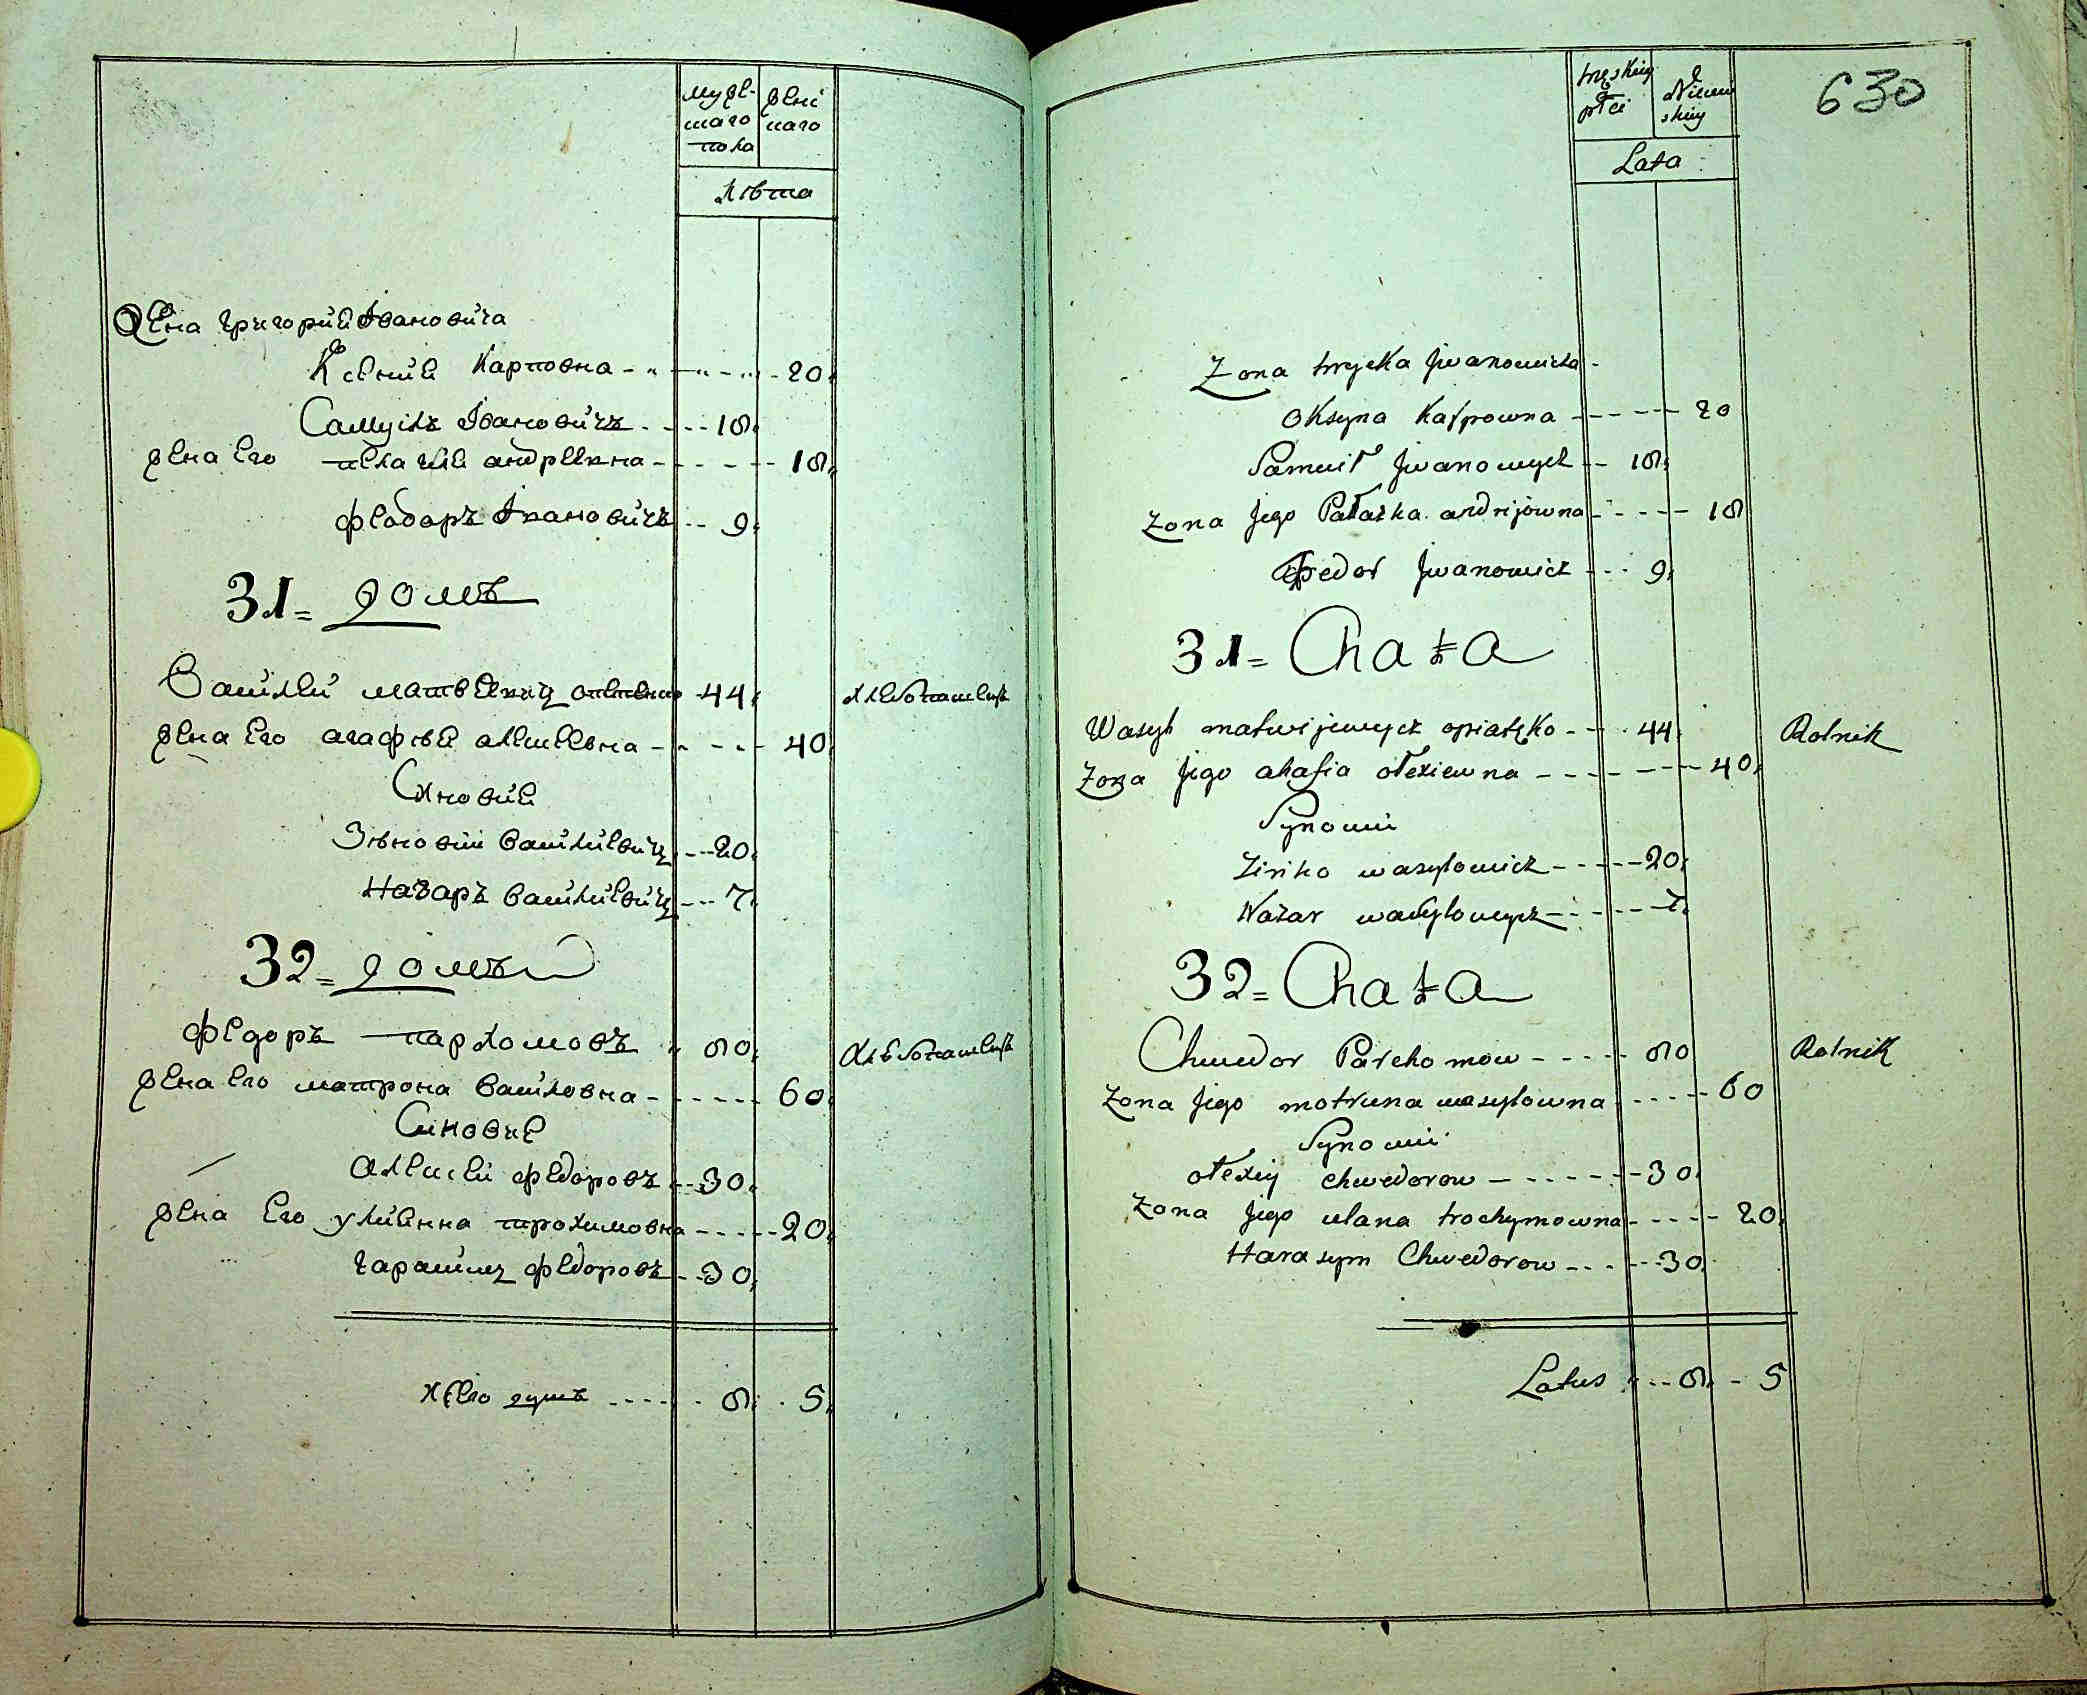 мужескаго пола
женскаго
лѣта
Жена григория Івановича
Ксения Карповна 20
Самуилъ Івановичъ 18
жена его пелагия андреевна 18
федоръ Івановичъ 9
31= домъ
Василий матвеевич 44 хлебопашецъ
жена его агафия алексеевна 40
Синовия
Зѣновий василиевич 20
Назаръ василиевич 7
32= домъ
федоръ пархомовъ 80 хлебопашецъ
жена его матрона василовна 60
Синовие
алексей федоровъ 30
жена его улианна трохимовна 20
гарасим федоровъ 30
душъ 8 5
630
męskiey płci
Niewieskiey
Lata
Zona hryćka Jwanowicza
Oksyna Karpowna 20
Samuił Jwanowycz 18
Zona Jego Pałażka andrijowna 18
Fedor Jwanowicz 9
31= Chata
Wasyl matwijewycz opiatęko 44 Rolnik
Zona Jego ahafia ołexiewna 40
Synowi
Zinko wasylowicz 20
Nazar wasylowycz 7
32= Chata
Chwedor Parchomow 80 Rolnik
Zona Jego motruna wasylowna 60
Synowi
ołexiy chwedorow 30
Zona Jego ulana trochymowna 20
Harasym Chwedorow 30
Latus 8 5